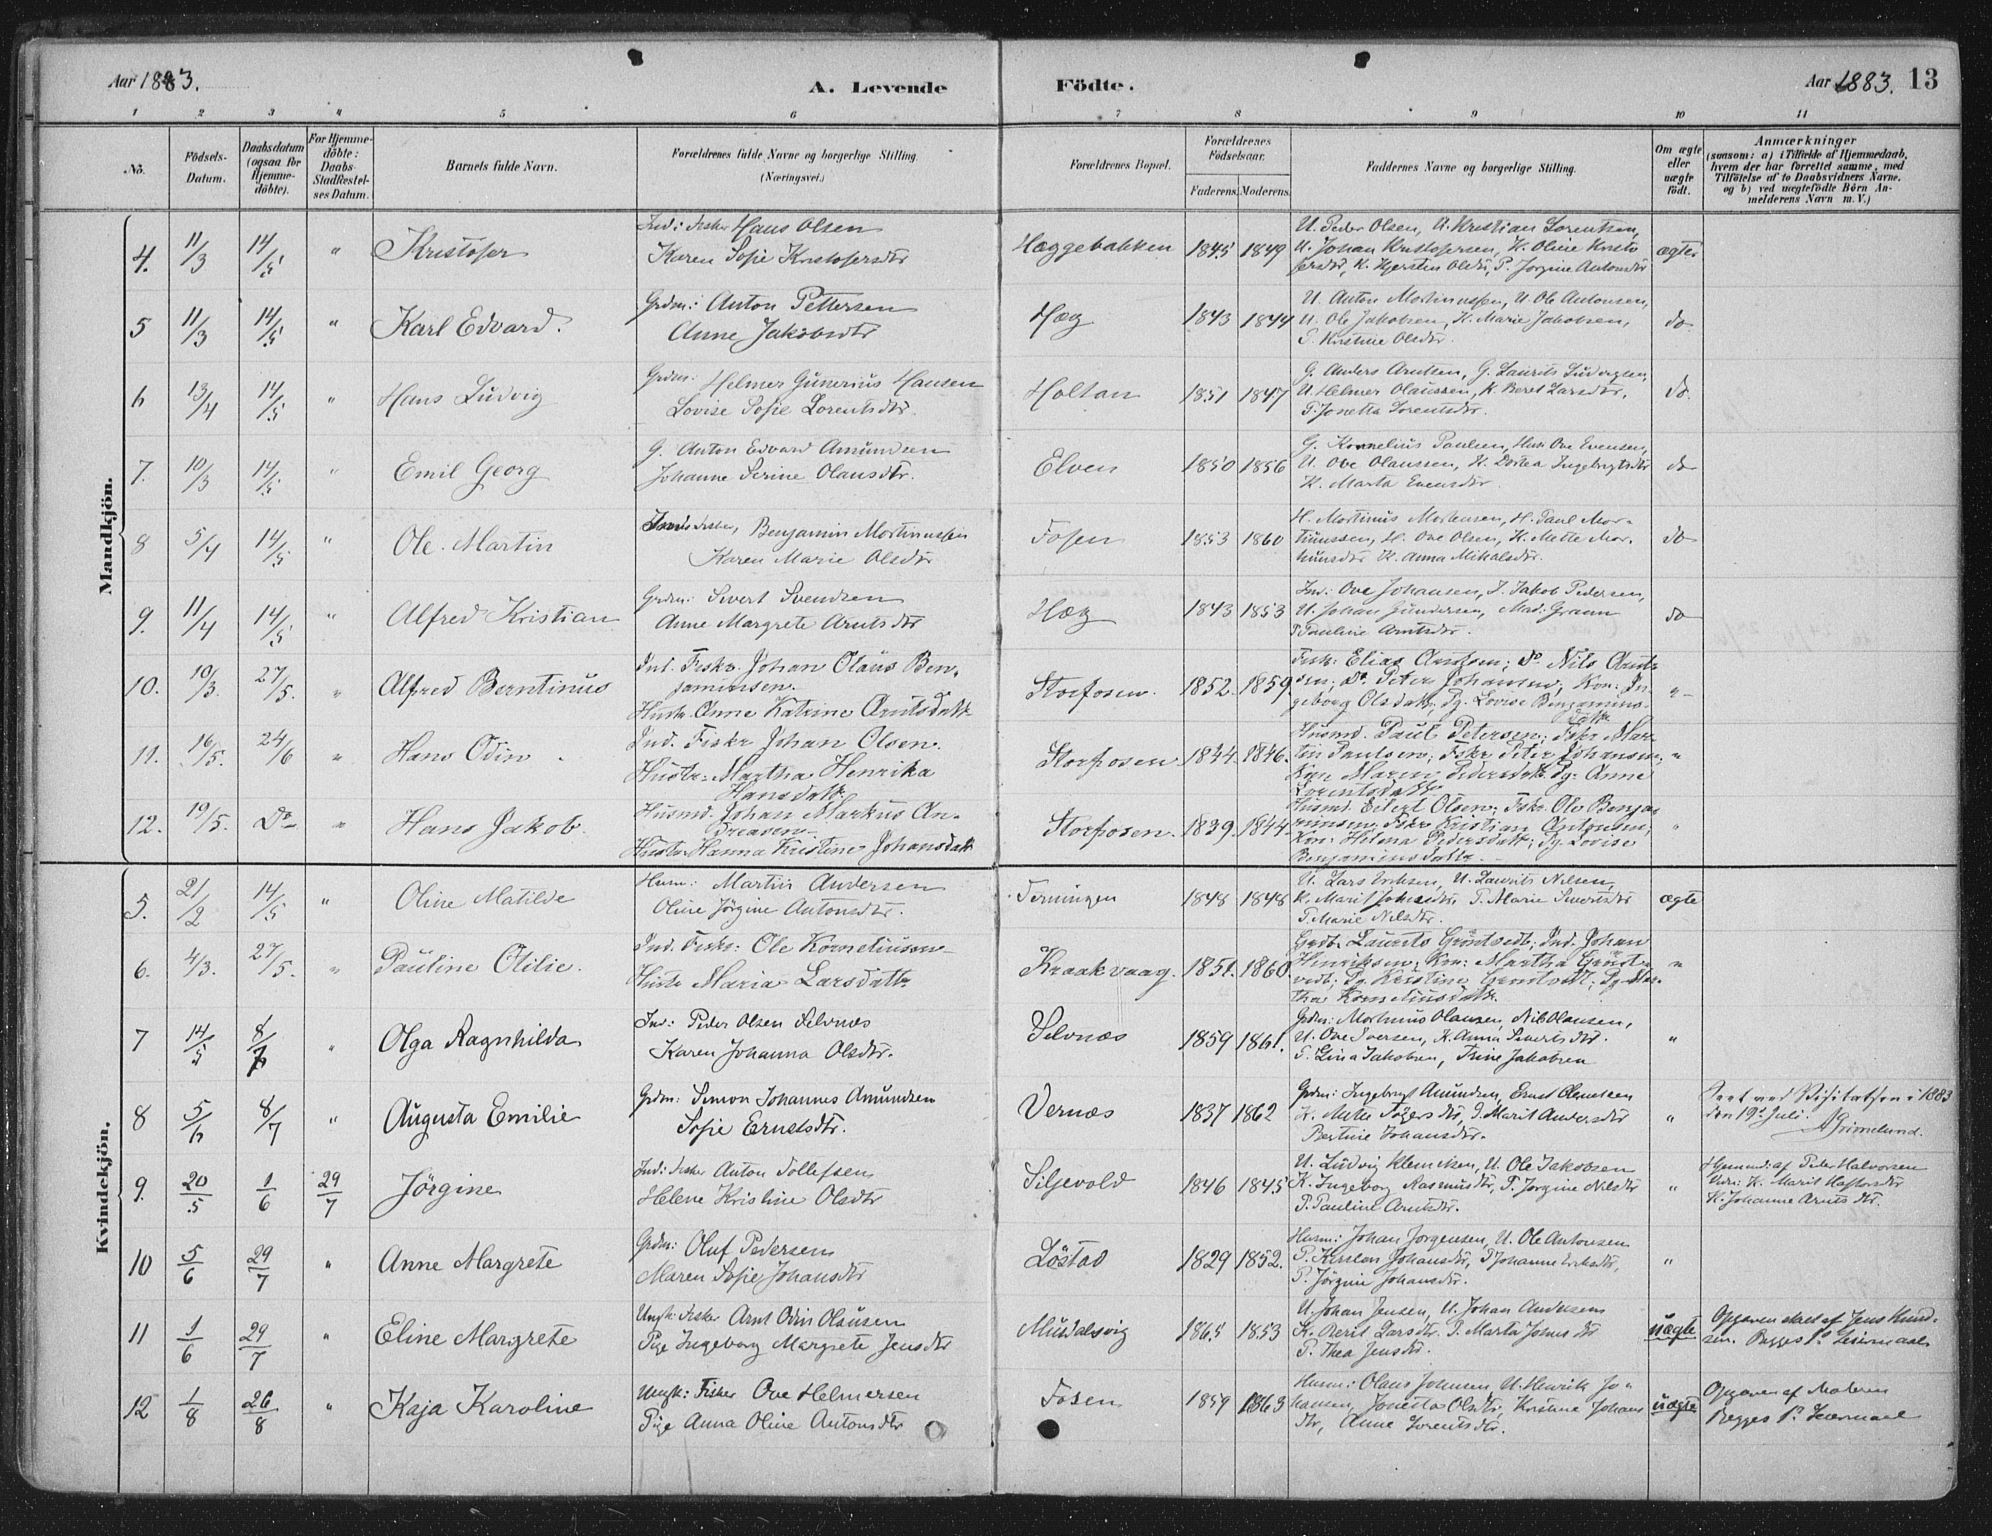 Aar 1883.
A. Levende
Födte.
Aar 1883. 13
1 2 3 4 5 6 7 8 9 10 11
No.
Födsels-
Datum.
Daabsdatum
(ogsaa for
Hjemme-
döbte).
For Hjemme-
döbte:
Daabs-
Stadfestel-
ses Datum.
Barnets fulde Navn.
Forældrenes fulde Navne og borgerlige Stilling.
(Næringsvei.)
Forældrenes Bopæl.
Forældrenes
Födselsaar.
Faderens. Moderens.
Faddernes Navne og borgerlige Stilling.
Om ægte
eller
uægte
födt.
Anmærkninger
(saasom: a) i Tilfælde af Hjemmedaab,
hvem der har forrettet samme, med
Tilföielse af to Daabsvidners Navne,
og b) ved uægtefödte Börn An-
melderens Navn m. V.)
Mandkjön.
4. 11/3 14/5 " Kristofer
Ind: Fisker Hans Olsen
Karen Sofie Kristofersdtr
Hæggebakken 1845 1849
U. Peder Olsen, U. Kristian Lorentsen,
U. Johan Kristofersen, K. Oline Kristo
fersdtr, K. Kjersten Olsdtr, P. Jorgine Antonsdtr
ægte
5 11/3 14/5 " Karl Edvard.
Grdm: Anton Pettersen
Anne Jakobsdtr
Hæg 1843 1844
U. Anton Martinussen, U. Ole Antonsen,
U. Ole Jakobsen, K. Marie Jakobsen,
P. Kristine Olsdtr.
do
6 13/4 14/5 " Hans Ludvig
Grdm: Helmer Gunerius Hansen
Lovise Sofie Lorentsdtr.
Holtan 1851 1847
G. Anders Arntsen, G. Laurits Ludvigsen,
U. Helmer Olaussen, K. Beret Larsdtr,
P. Jonetta Lorentsdtr.
do.
7. 10/3 14/5 " Emil Georg
G. Anton Edvard Amundsen
Johanne Serine Olausdtr.
Elven 1850 1856
G. Kornelius Paulsen, Husm Ove Evensen,
U. Ove Olaussen, K. Dortea Ingebrigtsdtr
K. Marta Evensdtr.
do
8 5/4 14/5 " Ole Martin
Inds Fisker, Benjamin Mortinussen
Karen Marie Olsdtr
Fosen 1853 1860
H. Mortinus Mortensen, H. Paul Mor-
tinussen, H. Ove Olsen, K. Mette Mor-
tinusdtr K. Anna Mikalsdtr.
do
9. 11/4 14/5 " Alfred Kristian
Grdm: Sivert Svendsen
Anne Margrete Arntsdtr
Hæg 1843 1853
Ind: Ove Johansen, I. Jakob Pedersen,
U. Johan Gundersen, Mad: Gramn
P. Pauline Arntsdtr.
do
10. 10/3. 27/5. " Alfred Berntinus
Ind. Fiskr. Johan Olaus Ben-
jaminsen.
Hustr. Anne Katrine Arntsdattr
Storfosen. 1852. 1859.
Fiskr: Elias Arntsen; Do Nils Arnt-
sen; Do. Peter Johansen; Kon: In-
geborg Olsdattr; Pg. Lovise Benjamins-
dattr
"
11. 16/5. 24/6 " Hans Odin
Ind. Fiskr Johan Olsen.
Hustr: Martha Henrika
Hansdattr.
Storfosen 1844. 1846.
Husmd. Paul Petersen; Fskr Mar-
tin Paulsen; Fskr. Peter Johansen;
Kon Maren Pedersdattr Pg: Anne
Lorentsdattr
"
12. 19/5. Do " Hans Jakob.
Husmd. Johan Markus An-
dreasen
Hustr. Hanna Kristine Johansdatt
Storfosen. 1839. 1844.
Husmd. Eilert Olsen; Fskr. Ole Benja-
minsen, Fskr Kristian Antonsen;
Kon: Helena Pedersdattr; Pg. Lovise
Benjaminsdattr.
"
Kvindekjön.
5. 21/2 14/5 " Oline Matilde
Husm: Martin Andersen
Oline Jörgine Antonsdtr.
Terningen 1848 1848
U. Lars Eriksen, U. Laurits Nilsen,
K. Marit Johnsdtr, P. Marie Sivertsdtr
P. Marie Nilsdtr.
ægte
6. 4/3. 27/5. " Pauline Otilie.
Ind. Fiskr: Ole Korneliusen
Hustr Maria Larsdattr
Kraakvaag. 1851. 1860.
Grdb. Laurits Gröntvedt; Ind. Johan
Henriksen; Kon: Martha Grönt-
vedt; Pg. Kristine Gröntvedt; Pg. Mar-
tha Korneliusdattr.
"
7 14/5 8/7 " Olga Ragnhilda
Ind: Peder Olsen Selvnæs
Karen Johanna Olsdtr.
Selvnæs 1859 1861.
Grdm: Mortinus Olausen, Nils Olausen,
U. Ove Iversen, K. Anna Sivertsdtr.
P. Lina Jakobsen, Trine Jakobsen
"
8 5/6 8/7 " Augusta Emilie
Grdm: Simon Johannes Amundsen
Sofie Ernstsdtr.
Vernæs 1837 1862
Grdm: Ingebrigt Amundsen, Ernst Olaussen
P. Marit Andersdtr
Bertine Johansdtr.
"
Seet ved Visitatsen i 1883
den 19de Juli.
A Grimelund.
9. 20/5 1/6 29/7 Jörgine
Ind: Fisker Anton Tollefsen
Helene Kristine Olsdtr
Siljevold 1846 1845
U. Ludvig Klemetsen, U. Ole Jakobsen
K. Ingeborg Rasmusdtr, P. Jorgine Nilsdtr
P. Pauline Arntsdtr.
"
Hjemmed: af Peder Halvorsen
Vidn: K. Marit Haftorsdtr
K. Johanne Arntsdtr.
10 5/6 29/7 " Anne Margrete
Grdm: Oluf Pedersen
Maren Sofie Johansdtr
Löstad 1829 1852.
Husm: Johan Jorgensen, U. Ole Antonsen
P. Kirsten Johansdtr, P Johanne Eriksdtr,
P. Jörgine Johansdtr.
"
11 1/6 29/7 " Eline Margrete
Ungk: Fisker Arnt Odin Olausen
Pige Ingeborg Margrete Jensdtr
Musdalsvig 1865 1853
U. Johan Jensen, U. Johan Andersen
K. Berit Larsdtr. P. Marta Johnsdtr
P. Thea Jensdtr.
uægte
Opgaven af Jens Knud-
sen. Begges 1ste Leiermaal
12 1/8 26/8 " Kaja Karoline
Ungk: Fisker Ove Helmersen
Pige Anna Oline Antonsdtr
Fosen 1859 1863
Husm: Olaus Johnsen, U. Henrik Jo-
hansen, Jonetta Olsdtr, Kristine Johans
dtr, Anne Lorentsdtr.
uægte
Opgaven af Moderen
Begges 1ste Leiermaal